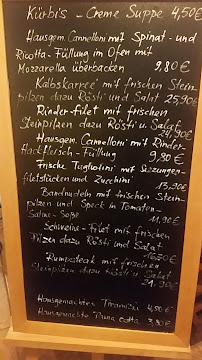 Kürbis - Creme Suppe 4,50€
Hausgem. Cannelloni mit Spinat- und
Ricotta-Füllung im Ofen mit
Mozzarella überbacken 9,80 €
Kalbskarree mit frischen Stein-
pilzen dazu Rösti und Salat 25,90€
Rinder-Filet mit frischen
Steinpilzen dazu Rösti u. Salat
24,90€
Hausgem. Cannelloni mit Rinder-
Hackfleisch-Füllung 9,80 €
Frische Tagliolini mit Seezungen-
filetstücken und Zucchini
13,20€
Bandnudeln mit frischen Stein-
pilzen und Speck in Tomaten-
Sahne-Soße 11,90 €
Schweine-Filet mit frischen
Pilzen dazu Rösti und Salat
16,50 €
Rumpsteak mit frischen
Steinpilzen dazu Rösti u. Salat
21,90€
Hausgemachtes Tiramisu 4,50 €
Hausgemachte Panna Cotta 3,80€